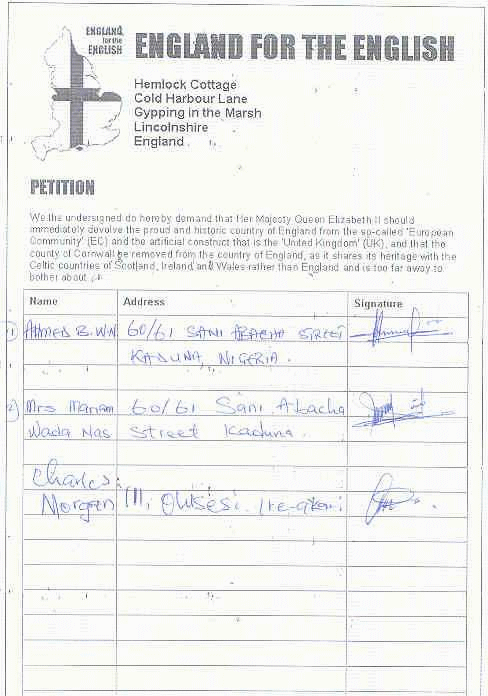 ENGLAND
for the
ENGLISH
ENGLAND FOR THE ENGLISH
Hemlock Cottage
Cold Harbour Lane
Gypping in the Marsh
Lincolnshire
England
PETITION
We the undersigned do hereby demand that Her Majesty Queen Elizabeth II should
immediately devolve the proud and historic country of England from the so-called 'European
Community' (EC) and the artificial construct that is the 'United Kingdom' (UK), and that the
county of Cornwall be removed from the country of England, as it shares its heritage with the
Celtic countries of Scotland, Ireland and Wales rather than England and is too far away to
bother about.
Name Address Signature
1) AHMED B. W.N 60/61 SANI ABACHA STREET
KADUNA NIGERIA.
2) Mrs Mariam 60/61 Sani Abacha
Wada Nas Street Kaduna.
Charles
Morgan 111,